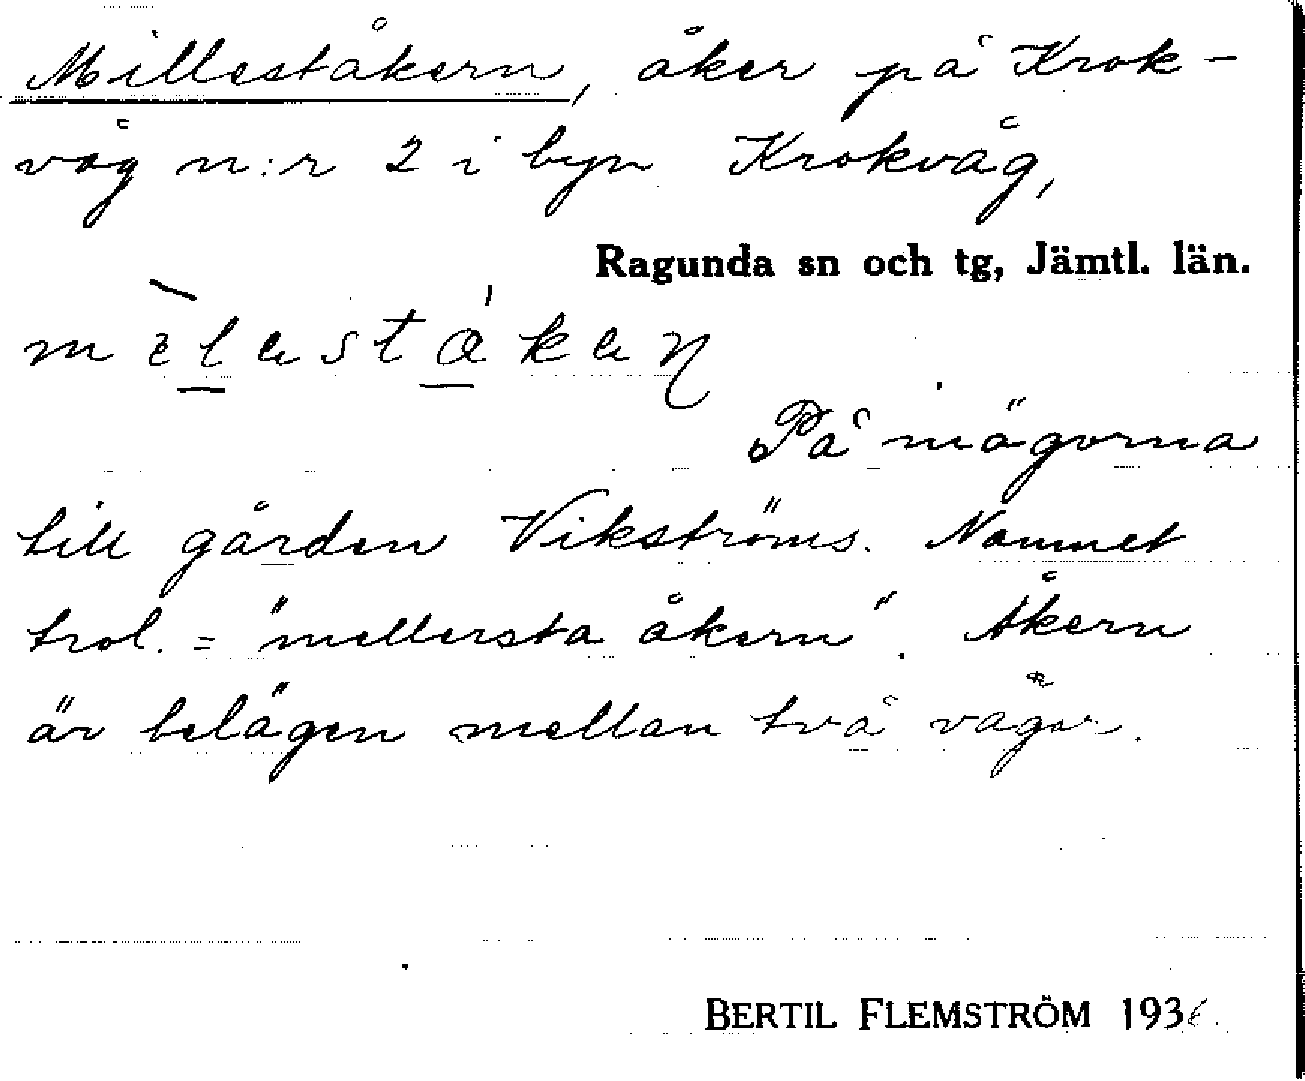 Millestå̊kern, åker på Krok-
våg n:r 2 i byn Krokvåg,
Ragunda sn och tg, Jämtl. län.
På mägorna
till gården Vikströms. Namnet
trol. = "mellersta åkern". Åkern
är belägen mellan två vägar.
BERTIL FLEMSTRÖM 1936.